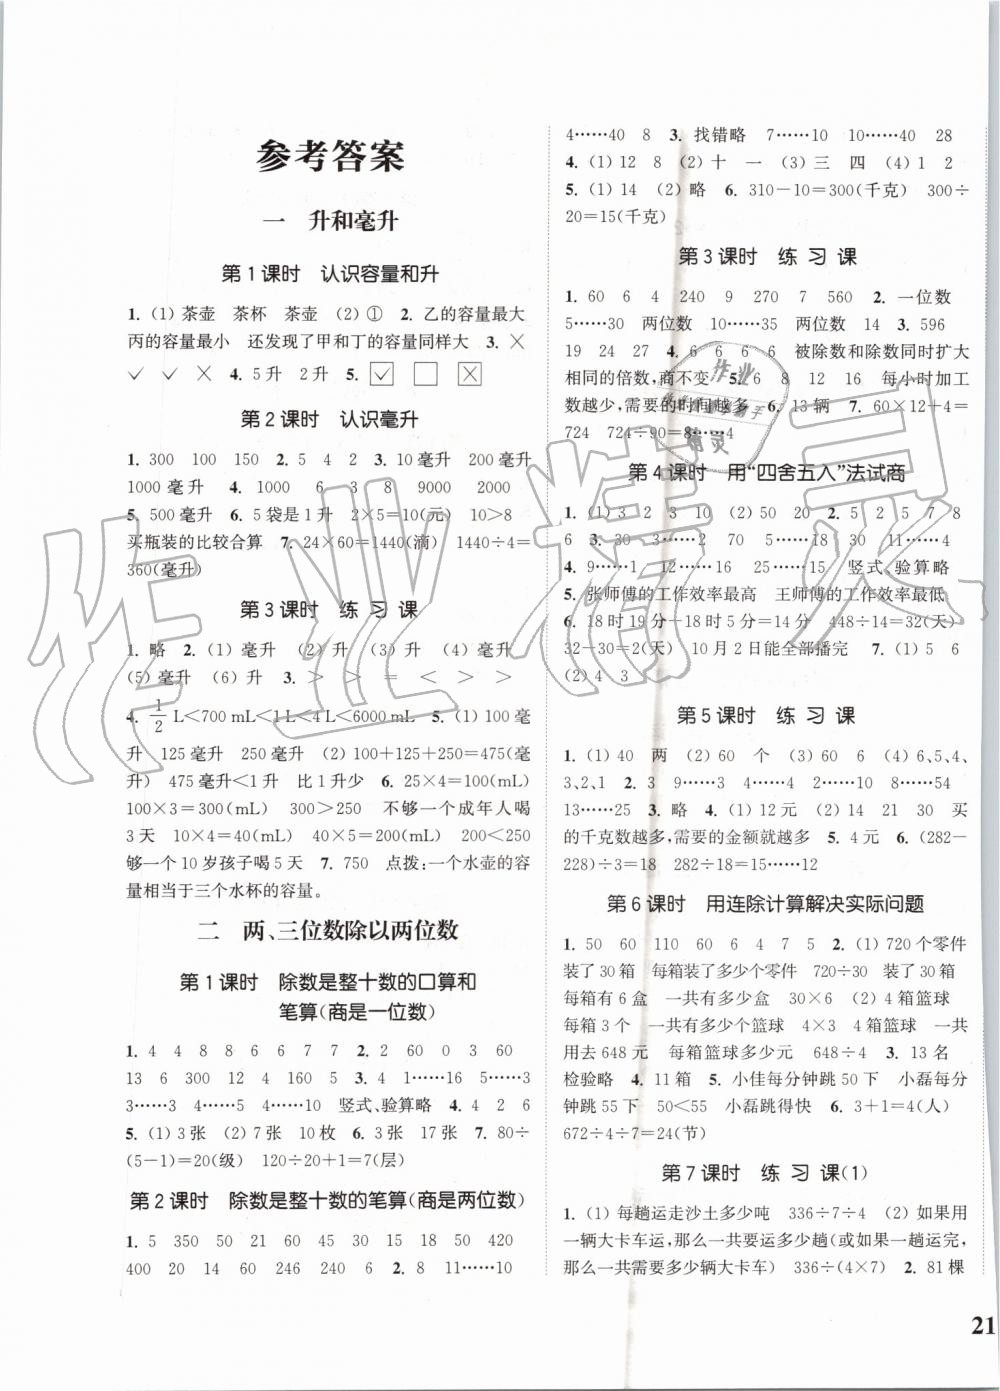 参考答案
一 升和毫升
第1课时 认识容量和升
1. (1) 茶壶 茶杯 茶壶 (2) ① 2. 乙的容量最大
丙的容量最小 还发现了甲和丁的容量同样大 3. ×
✓ ✓ × 4. 5升 2升 5. ☑ □ ☒
第2课时 认识毫升
1. 300 100 150 2. 5 4 2 3. 10毫升 200毫升
1000毫升 4. 1000 6 3 8 9000 2000
5. 500毫升 6. 5袋是1升 2×5=10(元) 10>8
买瓶装的比较合算 7. 24×60=1440(滴) 1440÷4=
360(毫升)
第3课时 练 习 课
1. 略 2. (1) 毫升 (2) 升 (3) 升 (4) 毫升
(5) 毫升 (6) 升 3. > > = < > >
4. 1/2 L<700 mL<1 L<4 L<6000 mL 5. (1) 100毫
升 125毫升 250毫升 (2) 100+125+250=475(毫
升) 475毫升<1升 比1升少 6. 25×4=100(mL)
100×3=300(mL) 300>250 不够一个成年人喝
3天 10×4=40(mL) 40×5=200(mL) 200<250
够一个10岁孩子喝5天 7. 750 点拨:一个水壶的容
量相当于三个水杯的容量。
二 两、三位数除以两位数
第1课时 除数是整十数的口算和
笔算(商是一位数)
1. 4 4 8 8 6 6 7 7 2. 2 60 0 3 60
13 6 300 12 4 160 5 3. 4 1……16 5……3
3……3 4……5 4……10 竖式、验算略 4. 4 2 6
5. (1) 3张 (2) 7张 10枚 6. 3张 17张 7. 80÷
(5-1)=20(级) 120÷20+1=7(层)
第2课时 除数是整十数的笔算(商是两位数)
1. 5 350 50 21 60 45 30 15 50 420
400 20 14 60 246 240 6 2. 8 11……10
4……40 8 3. 找错略 7……10 10……40 28
4. (1) 12 8 (2) 十 一 (3) 三 四 (4) 1 2
5. (1) 14 (2) 略 6. 310-10=300(千克) 300÷
20=15(千克)
第3课时 练 习 课
1. 60 6 4 240 9 270 7 560 2. 一位数
5……30 两位数 10……35 两位数 14 3. 596
19 24 27 4. 6 6 6 6 被除数和除数同时扩大
相同的倍数,商不变 5. 6 8 12 16 每小时加工
数越少,需要的时间越多 6. 13辆 7. 60×12+4=
724 724÷90=8……4
第4课时 用“四舍五入”法试商
1. (1) 3 2 3 10 (2) 50 20 2. 5 2 5 7 8
6 3. 30 3……2 70 5……18 30 11……4
4. 9……1 12……16 25……15 竖式、验算略
5. 张师傅的工作效率最高 王师傅的工作效率最低
6. 18时19分-18时5分=14分 448÷14=32(天)
32-30=2(天) 10月2日能全部播完 7. (1) 5 6
(2) 4 3
第5课时 练 习 课
1. (1) 40 两 (2) 60 个 (3) 60 6 (4) 6、5、4、
3、2、1 2. 3 9……3 4……4 2……10 8……54
13……25 3. 略 4. (1) 12元 (2) 14 21 30 买
的千克数越多,需要的金额就越多 5. 4元 6. (282-
228)÷3=18 282÷18=15……12
第6课时 用连除计算解决实际问题
1. 50 60 110 60 6 4 7 5 2. (1) 720个零件
装了30箱 每箱装了多少个零件 720÷30 装了30箱
每箱有6盒 一共有多少盒 30×6 (2) 4箱篮球
每箱3个 一共有多少个篮球 4×3 4箱篮球 一共
用去648元 每箱篮球多少元 648÷4 3. 13名
检验略 4. 11箱 5. 小佳每分钟跳50下 小磊每分
钟跳55下 50<55 小磊跳得快 6. 3+1=4(人)
672÷4÷7=24(节)
第7课时 练 习 课(1)
1. (1) 每趟运走沙土多少吨 336÷7÷4 (2) 如果用
一辆大卡车运,那么一共要运多少趟(或如果运一趟,
那么一共需要多少辆大卡车) 336÷(4×7) 2. 81棵
21
作业精灵